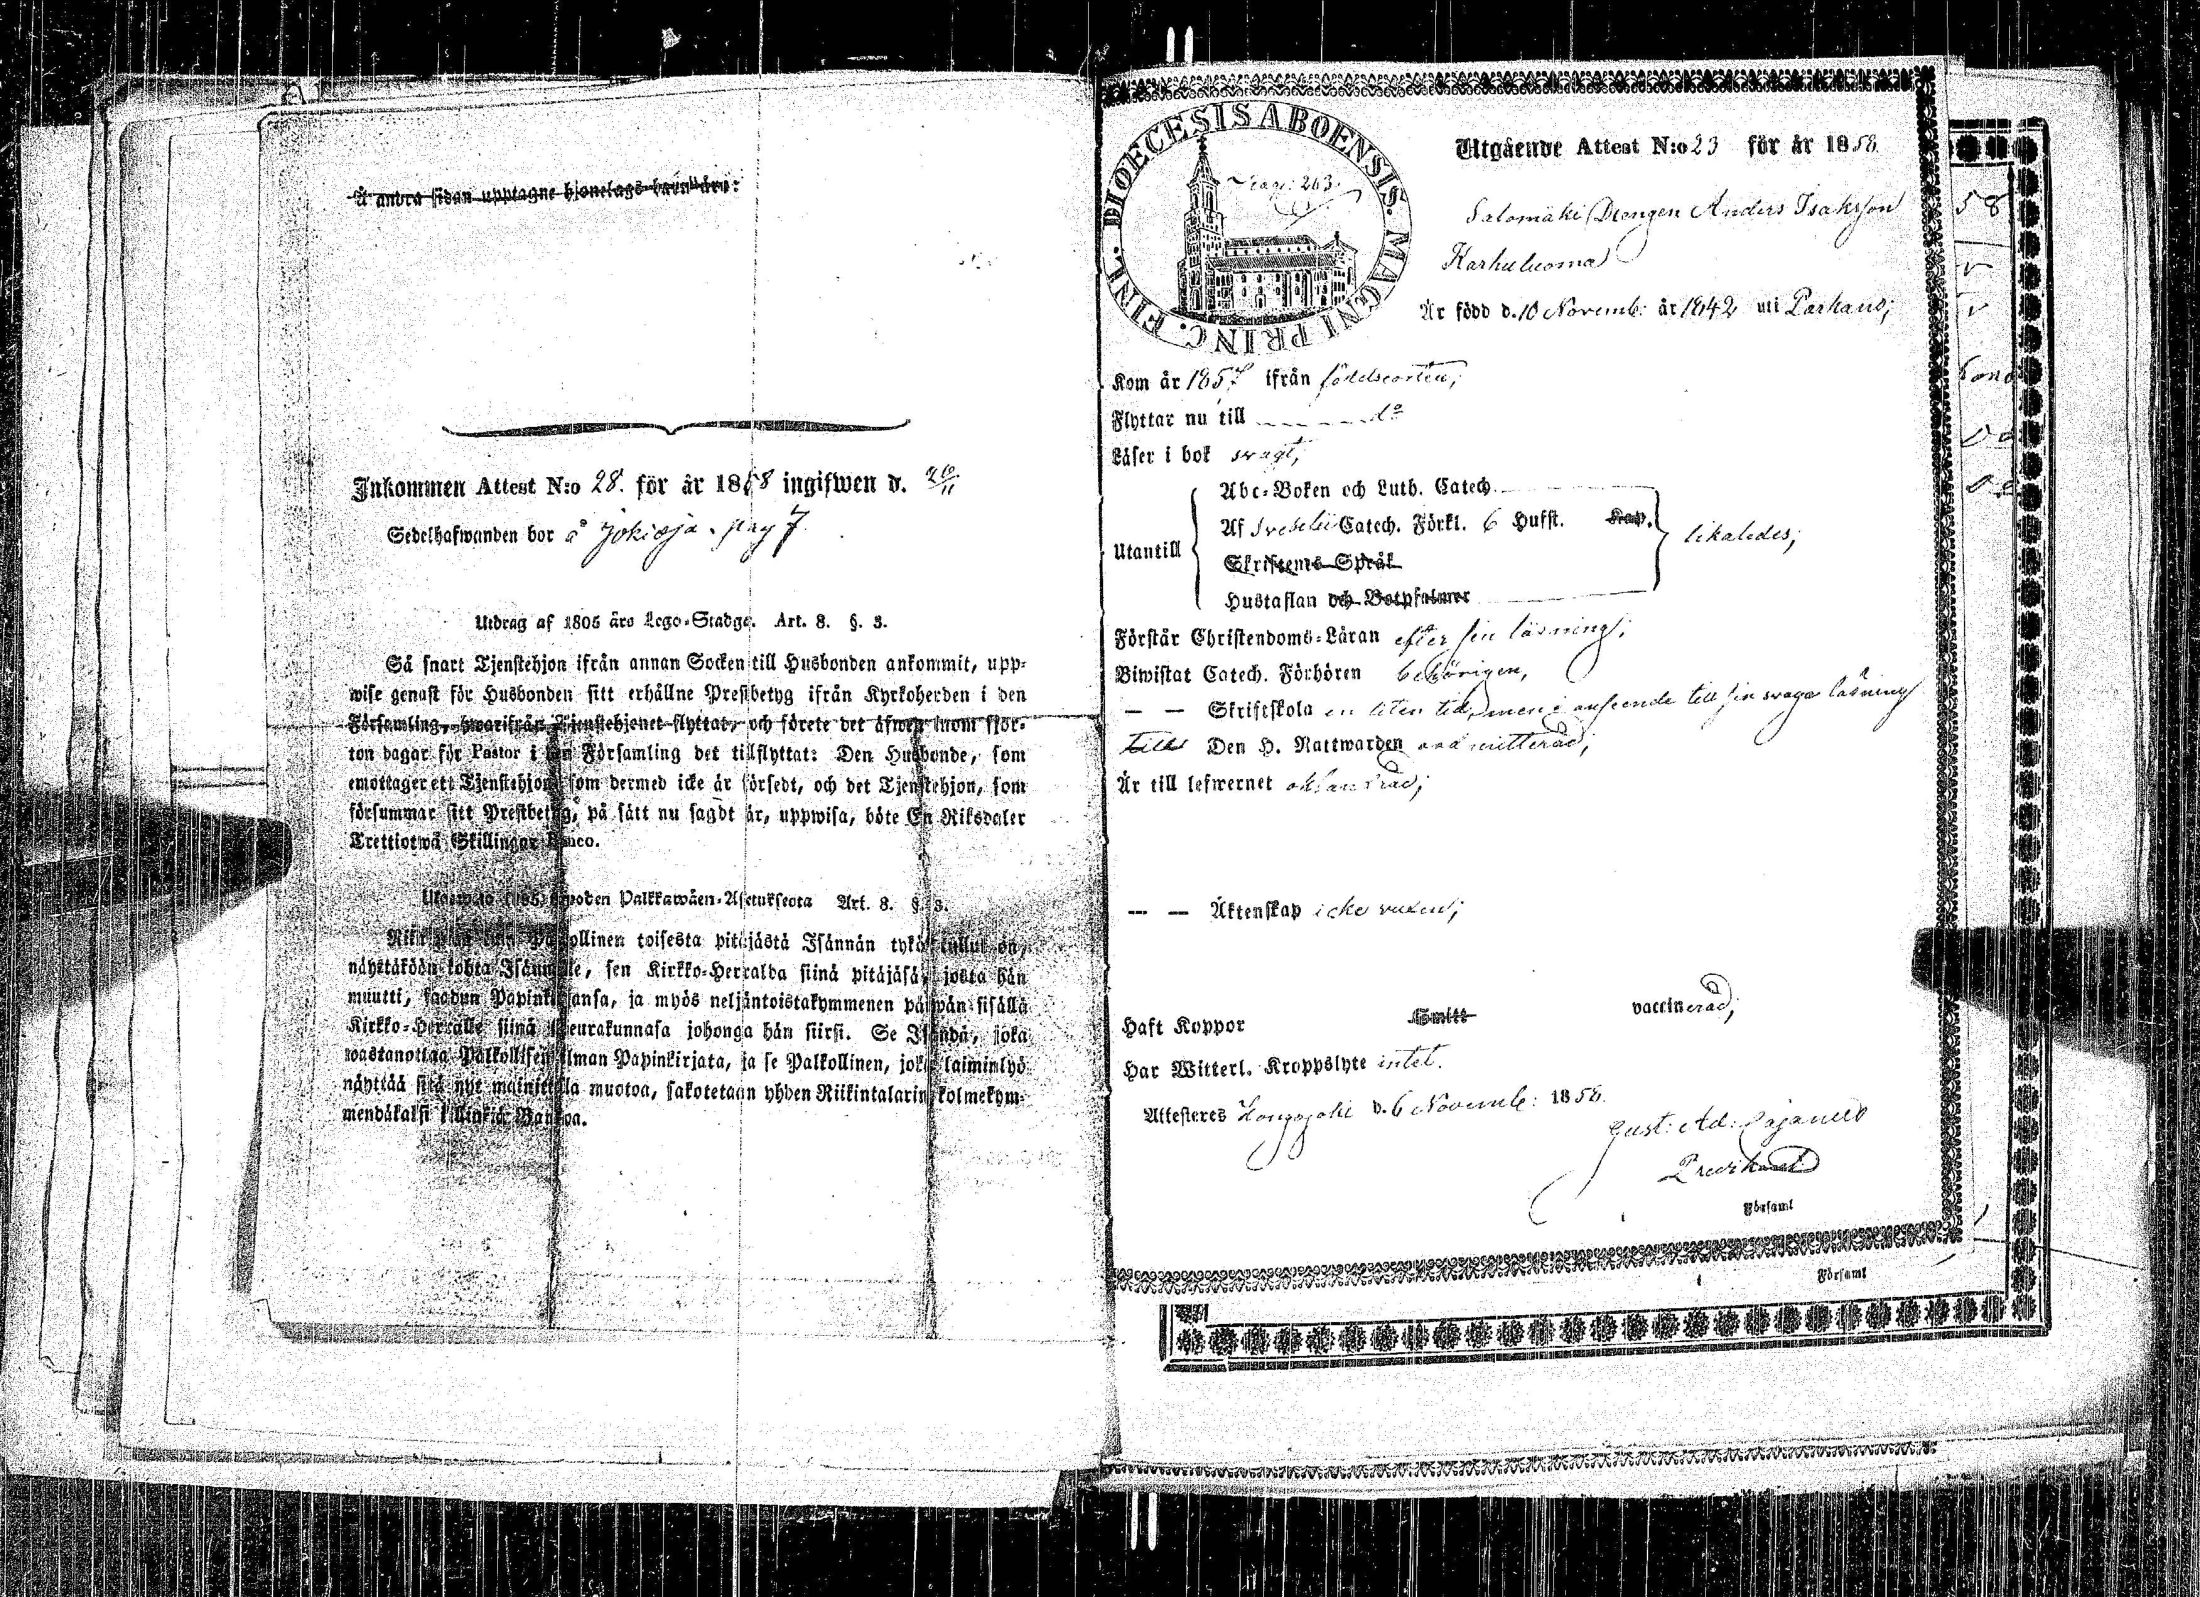 Å andra sidan upptagne hjonelags barn äro:
Inkommen Attest N:o 28. för år 1858 ingifwen d. 26/11
Sedelhafwanden bor å Jokioja. pag 7.
Utdrag af 1805 års Lego-Stadga. Art. 8. §. 3.
Så snart Tjenstehjon ifrån annan Socken till Husbonden ankommit, upp-
wise genast för Husbonden sitt erhållne Prestbetyg ifrån Kyrkoherden i den
Församling, hwarifrån Tjenstehjonet flyttat, och förete det äfwen inom fjor-
ton dagar för Pastor i den Församling det tillflyttat: Den Husbonde, som
emottager ett Tjenstehjon, som dermed icke är försedt, och det Tjenstehjon, som
försummar sitt Prestbetyg, på sätt nu sagdt är, uppwisa, böte En Riksdaler
Trettiotwå Skillingar Banco.
1805 wuoden Palkkawäen-Asetuksesta Art. 8. §. 3.
Palkollinen toisesta pitäjästä Isännän tykö tullut on,
näyttäköön kohta Isännälle, sen Kirkko-Herralda siinä pitäjäsä, josta hän
muutti, saadun Papinkirjansa, ja myös neljäntoistakymmenen päiwän sisällä
Kirkko-Herralle siinä Seurakunnasa johonga hän siirsi. Se Isändä, joka
wastanottaa Palkollisen ilman Papinkirjata, ja se Palkollinen, joka laiminlyö
näyttää sitä nyt mainitulla muotoa, sakotetaan yhden Riikintalarin kolmekym-
mendäkaksi killinkiä Bankoa.
DIOECESIS ABOENSIS. MAGNI PRINC. FINL.
pag: 263.
Utgående Attest N:o 23 för år 1858
Salomäki Drengen Anders Isaksson
Karhuluoma
Är född d. 10 Novemb: år 1842 uti Parkano;
Kom år 1857 ifrån födelseorten;
Flyttar nu till do
Läser i bok svagt,
Abc-Boken och Luth. Catech.
Utantill Af Svebelii Catech. Förkl. 6 Hufst. Kap. likaledes;
Skriftenes Språk
Hustaflan och Botpsalmer
Förstår Christendoms-Läran efter sin läsning;
Biwistat Catech. Förhören behörigen,
— — Skriftskola en liten tid, men i anseende till sin svaga läsning
Den H. Nattwarden oadmitterad;
Är till lefwernet oklandrad;
— — Äktenskap icke vuxen;
Haft Koppor Smitt vaccinerad;
Har Witterl. Kroppslyte intet.
Attesteres Kongojoki d. 6 Novemb: 1858.
Gust: Ad: Pajanen
Predikant
Församl
Församl
58